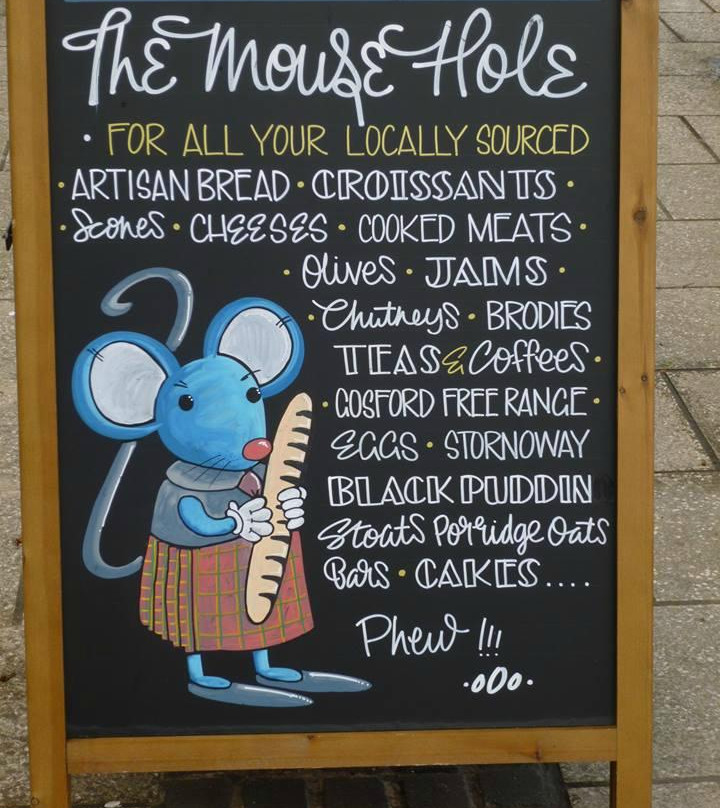 The Mouse Hole
· FOR ALL YOUR LOCALLY SOURCED
· ARTISAN BREAD · CROISSANTS ·
· Scones · CHEESES · COOKED MEATS ·
· Olives · JAMS ·
· Chutneys · BRODIES
TEAS & Coffees ·
· GOSFORD FREE RANGE ·
EGGS · STORNOWAY
BLACK PUDDIN
Stoats Porridge Oats
Bars · CAKES ....
Phew !!!
·oOo·